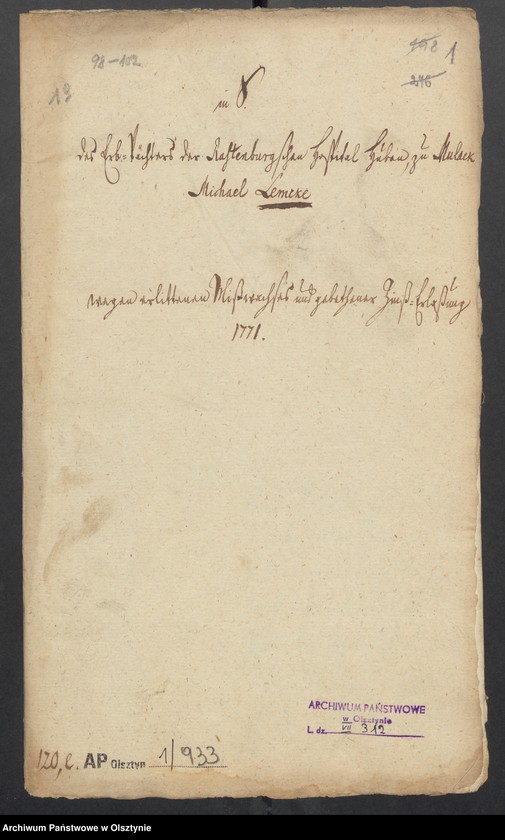 13
98-102
1
in
des Erb-Pächters der Rastenburgschen Hospital Huben, zu Mulack
Michael Lemcke
wegen erlittenen Mißwachses und gebethener Zinß-Erlaßung
1771.
ARCHIWUM PAŃSTWOWE
w Olsztynie
L. dz. VII 312
120, C. AP Olsztyn 1/933
Archiwum Państwowe w Olsztynie